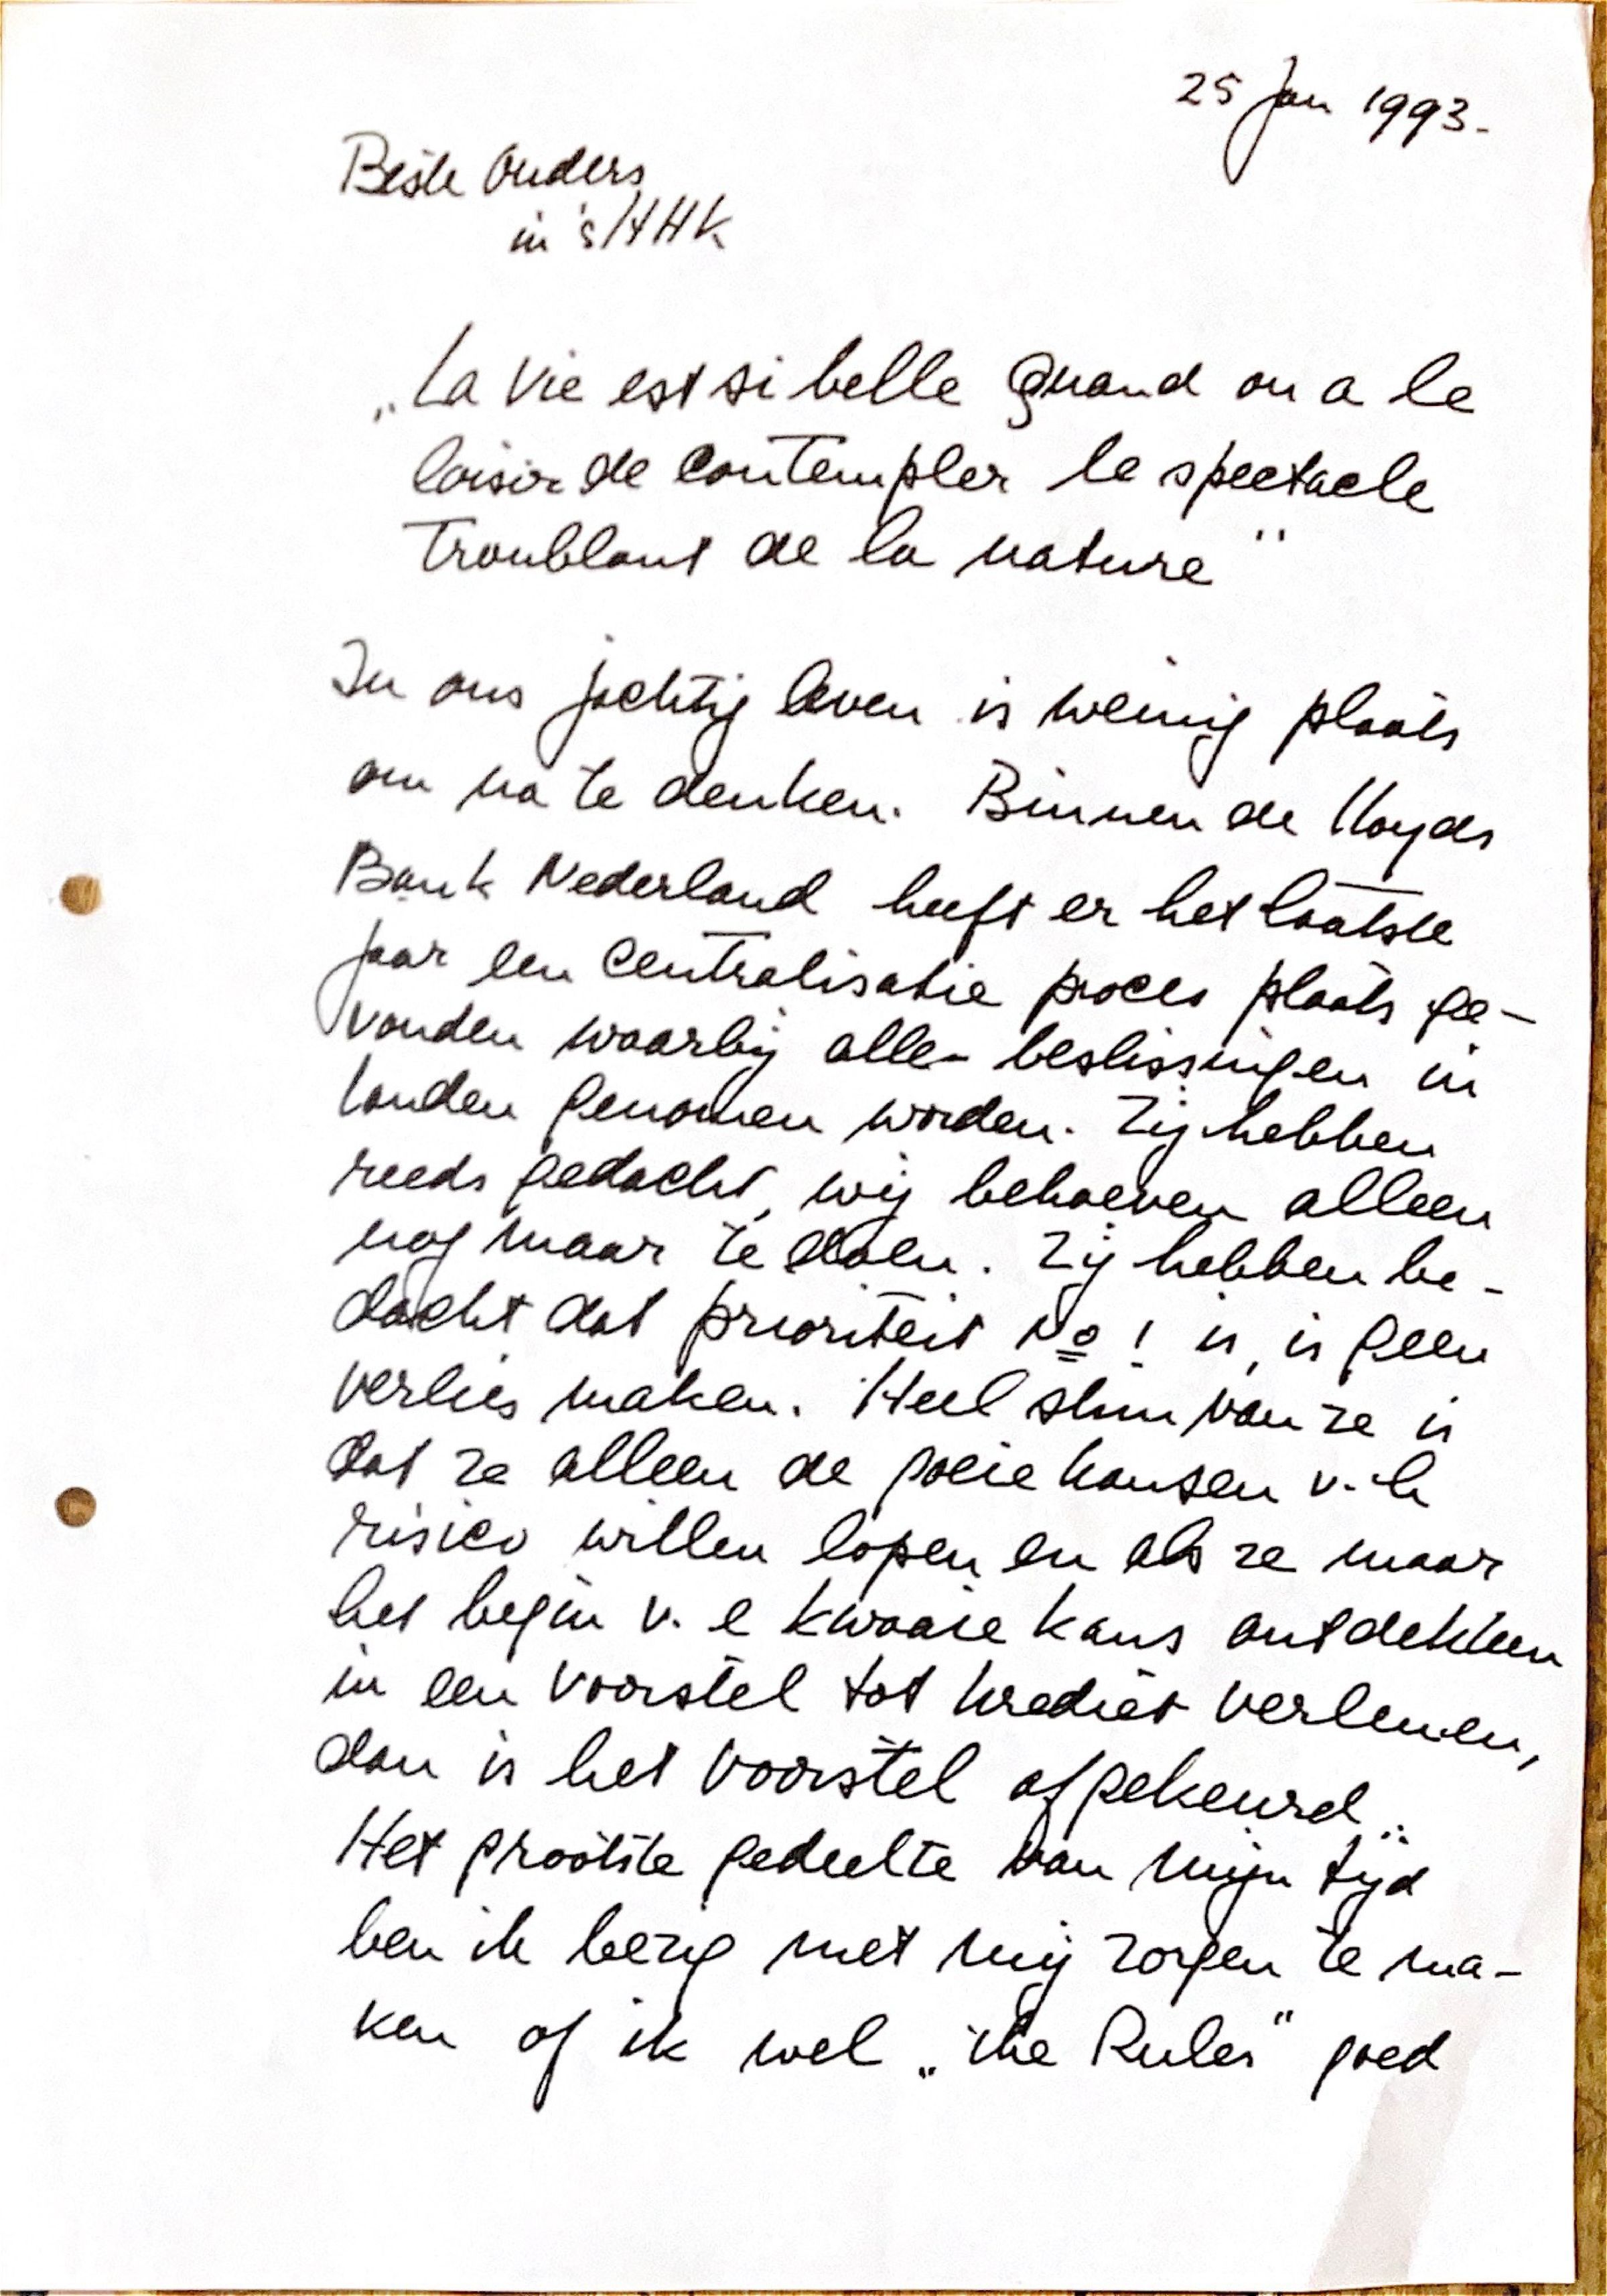 25 Jan 1993.
Beste Ouders
in 'sHHK
„La vie est si belle Quand on a le
loisir de contempler le spectacle
troublant de la nature"
In ons jachtig leven is weinig plaats
om na te denken. Binnen de Lloyds
Bank Nederland heeft er het laatste
jaar een centralisatie proces plaats ge-
vonden waarbij alle beslissingen in
Londen genomen worden. Zij hebben
reeds gedacht, wij behoeven alleen
nog maar te doen. Zij hebben be-
dacht dat prioriteit No 1 is, is geen
verlies maken. Heel slim van ze is
dat ze alleen de goeie kansen v. h
risico willen lopen en als ze maar
het begin v. e kwaaie kans ontdekken
in een voorstel tot krediet verlenen,
dan is het voorstel afgekeurd..
Het grootste gedeelte van mijn tijd
ben ik bezig met mij zorgen te ma-
ken of ik wel „the Rules" goed